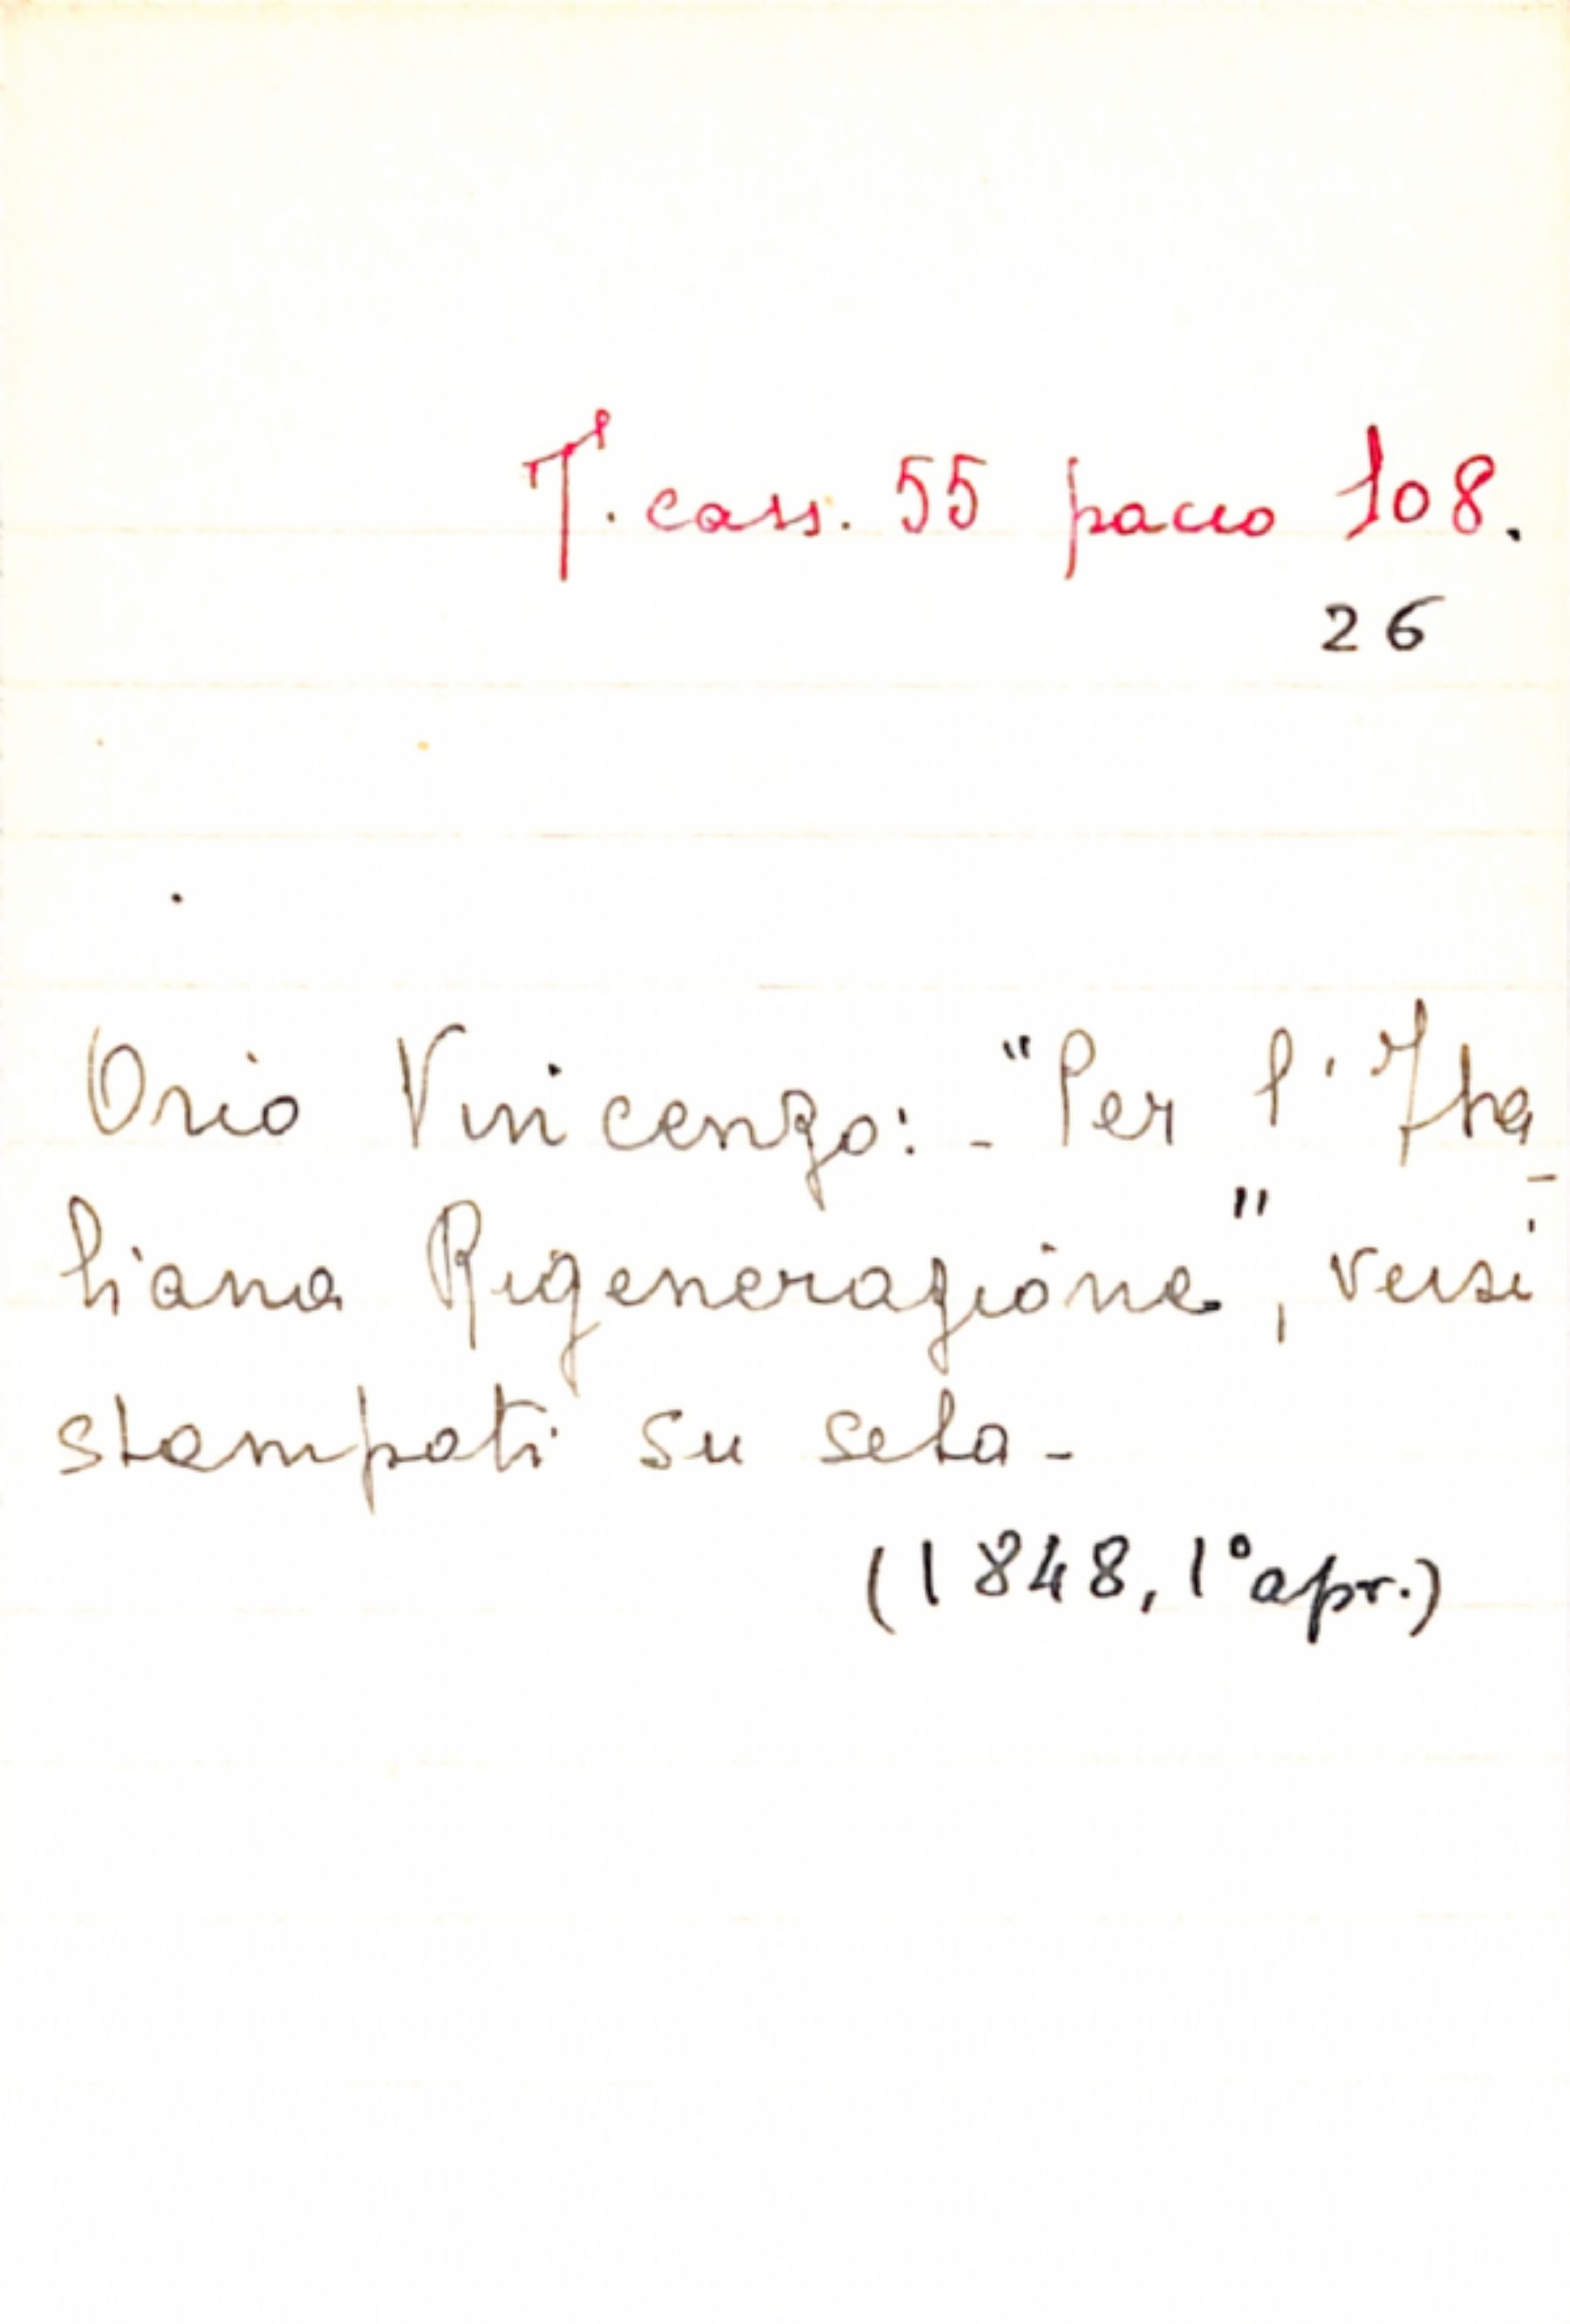 T. cass. 55 pacco 108.
26
Orio Vincenzo: - "Per l'Ita-
liana Rigenerazione", versi
stampati su seta -
(1848, 1° apr.)